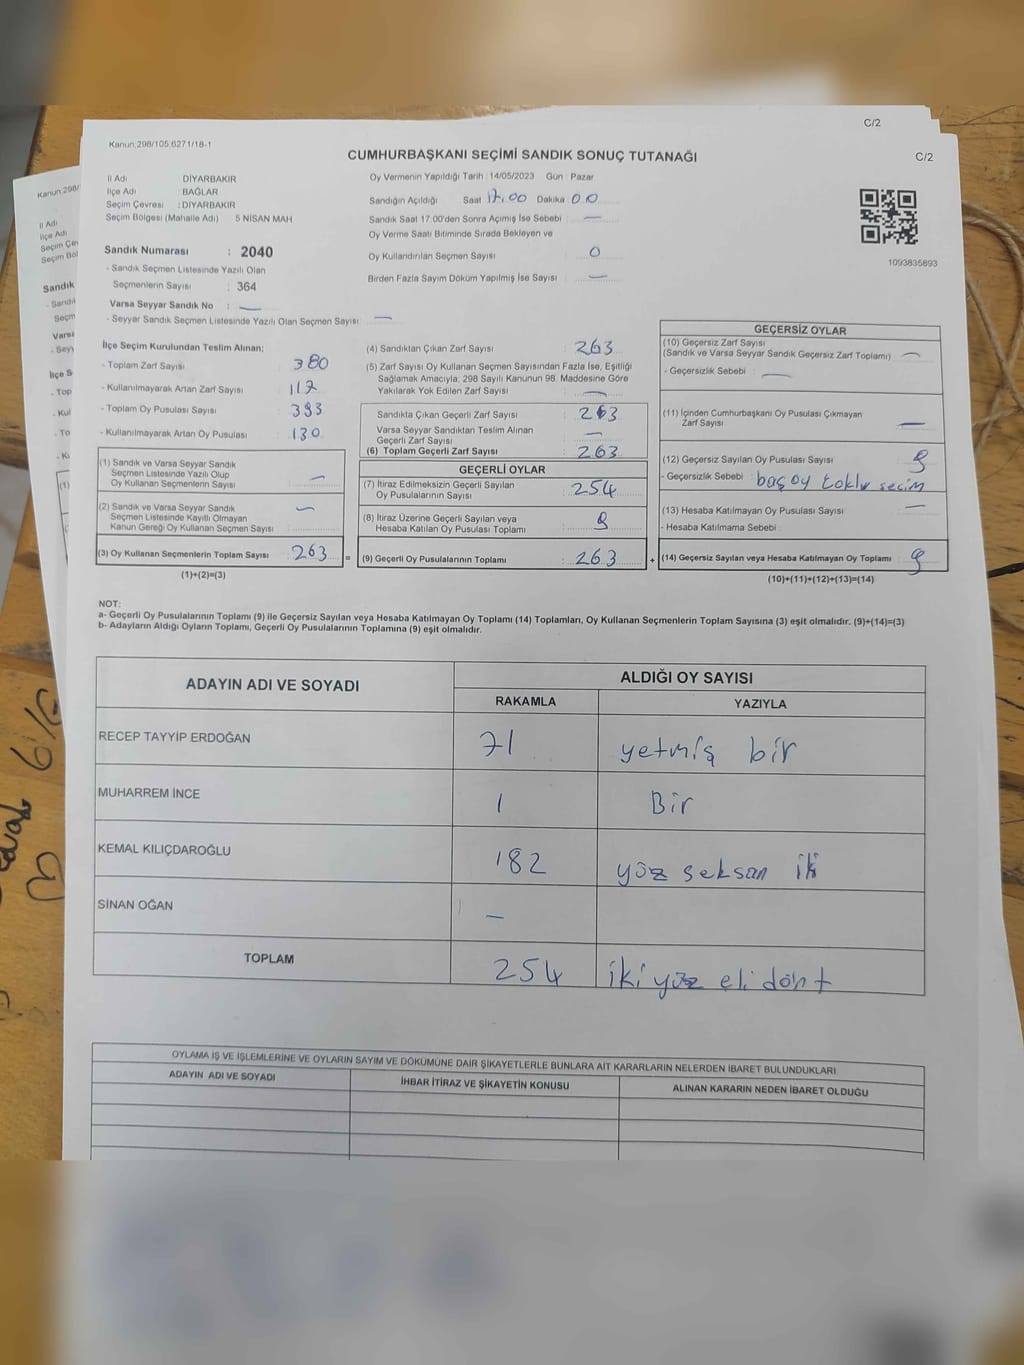 C/2
Kanun:298/105.6271/18-1
C/2
CUMHURBAŞKANI SEÇİMİ SANDIK SONUÇ TUTANAĞI
İl Adı : DİYARBAKIR
İlçe Adı : BAĞLAR
Seçim Çevresi : DİYARBAKIR
Seçim Bölgesi (Mahalle Adı) 5 NİSAN MAH
Sandık Numarası : 2040
- Sandık Seçmen Listesinde Yazılı Olan
Seçmenlerin Sayısı : 364
Varsa Seyyar Sandık No : —
- Seyyar Sandık Seçmen Listesinde Yazılı Olan Seçmen Sayısı : —
Oy Vermenin Yapıldığı Tarih : 14/05/2023 Gün : Pazar
Sandığın Açıldığı Saat 17.00 Dakika 00
Sandık Saat 17.00'den Sonra Açımış İse Sebebi : —
Oy Verme Saati Bitiminde Sırada Bekleyen ve
Oy Kullandırılan Seçmen Sayısı : 0
Birden Fazla Sayım Döküm Yapılmış İse Sayısı : —
1093835893
İlçe Seçim Kurulundan Teslim Alınan;
- Toplam Zarf Sayısı : 380
- Kullanılmayarak Artan Zarf Sayısı : 117
- Toplam Oy Pusulası Sayısı : 393
- Kullanılmayarak Artan Oy Pusulası : 130
(1) Sandık ve Varsa Seyyar Sandık
Seçmen Listesinde Yazılı Olup
Oy Kullanan Seçmenlerin Sayısı : —
(2) Sandık ve Varsa Seyyar Sandık
Seçmen Listesinde Kayıtlı Olmayan
Kanun Gereği Oy Kullanan Seçmen Sayısı : —
(3) Oy Kullanan Seçmenlerin Toplam Sayısı : 263 =
(1)+(2)=(3)
(4) Sandıktan Çıkan Zarf Sayısı : 263
(5) Zarf Sayısı Oy Kullanan Seçmen Sayısından Fazla İse, Eşitliği
Sağlamak Amacıyla; 298 Sayılı Kanunun 98. Maddesine Göre
Yakılarak Yok Edilen Zarf Sayısı : —
Sandıkta Çıkan Geçerli Zarf Sayısı : 263
Varsa Seyyar Sandıktan Teslim Alınan
Geçerli Zarf Sayısı : —
(6) Toplam Geçerli Zarf Sayısı : 263
GEÇERLİ OYLAR
(7) İtiraz Edilmeksizin Geçerli Sayılan
Oy Pusulalarının Sayısı : 254
(8) İtiraz Üzerine Geçerli Sayılan veya
Hesaba Katılan Oy Pusulası Toplamı : 9
(9) Geçerli Oy Pusulalarının Toplamı : 263 +
GEÇERSİZ OYLAR
(10) Geçersiz Zarf Sayısı
(Sandık ve Varsa Seyyar Sandık Geçersiz Zarf Toplamı) : —
- Geçersizlik Sebebi : —
(11) İçinden Cumhurbaşkanı Oy Pusulası Çıkmayan
Zarf Sayısı : —
(12) Geçersiz Sayılan Oy Pusulası Sayısı : 9
- Geçersizlik Sebebi : baş oy seçim
(13) Hesaba Katılmayan Oy Pusulası Sayısı : —
- Hesaba Katılmama Sebebi :
(14) Geçersiz Sayılan veya Hesaba Katılmayan Oy Toplamı : 9
(10)+(11)+(12)+(13)=(14)
NOT:
a- Geçerli Oy Pusulalarının Toplamı (9) ile Geçersiz Sayılan veya Hesaba Katılmayan Oy Toplamı (14) Toplamları, Oy Kullanan Seçmenlerin Toplam Sayısına (3) eşit olmalıdır. (9)+(14)=(3)
b- Adayların Aldığı Oyların Toplamı, Geçerli Oy Pusulalarının Toplamına (9) eşit olmalıdır.
ADAYIN ADI VE SOYADI ALDIĞI OY SAYISI
RAKAMLA YAZIYLA
RECEP TAYYİP ERDOĞAN 71 yetmiş bir
MUHARREM İNCE 1 Bir
KEMAL KILIÇDAROĞLU 182 yüz seksan iki
SİNAN OĞAN —
TOPLAM 254 iki yüz eli dört
OYLAMA İŞ VE İŞLEMLERİNE VE OYLARIN SAYIM VE DÖKÜMÜNE DAİR ŞİKAYETLERLE BUNLARA AİT KARARLARIN NELERDEN İBARET BULUNDUKLARI
ADAYIN ADI VE SOYADI İHBAR İTİRAZ VE ŞİKAYETİN KONUSU ALINAN KARARIN NEDEN İBARET OLDUĞU